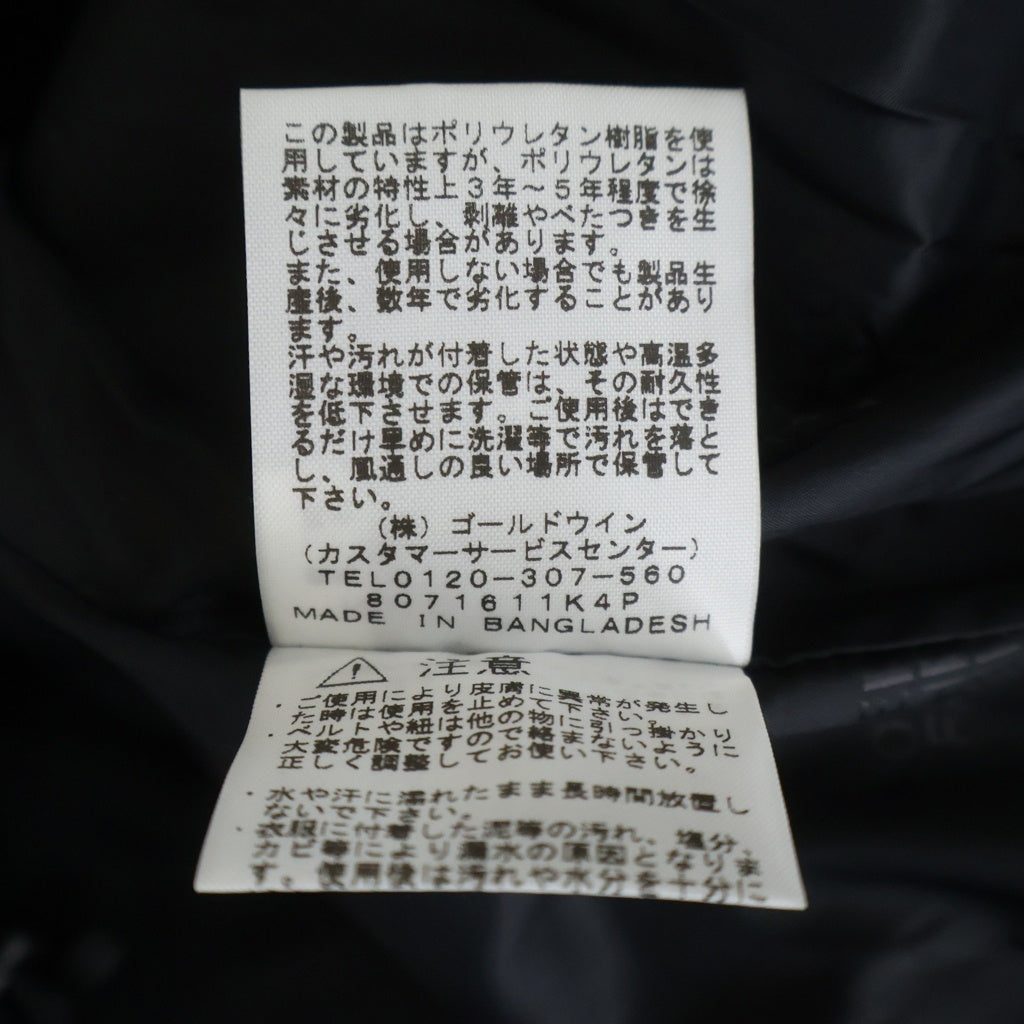 この製品はポリウレタン樹脂を使
用していますが、ポリウレタンは
素材の特性上3年~5年程度で徐
々に劣化し、剥離やべたつきを生
じさせる場合があります。
また、使用しない場合でも製品生
産後、数年で劣化することがあり
ます。
汗や汚れが付着した状態や高温多
湿な環境での保管は、その耐久性
を低下させます。ご使用後はでき
るだけ早めに洗濯等で汚れを落と
し、風通しの良い場所で保管して
下さい。
(株)ゴールドウイン
(カスタマーサービスセンター)
TEL0120-307-560
8071611K4P
MADE IN BANGLADESH
注意
・ご使用により皮膚に異常が発生し
た時は使用を止めて下さい。
・ベルトや紐は他の物に引っ掛かり
大変危険ですので絡まないように
正しく調整してお使い下さい。
・水や汗に濡れたまま長時間放置し
ないで下さい。
・衣服に付着した泥等の汚れ、塩分、
カビ等により漏水の原因となりま
す。使用後は汚れや水分を十分に